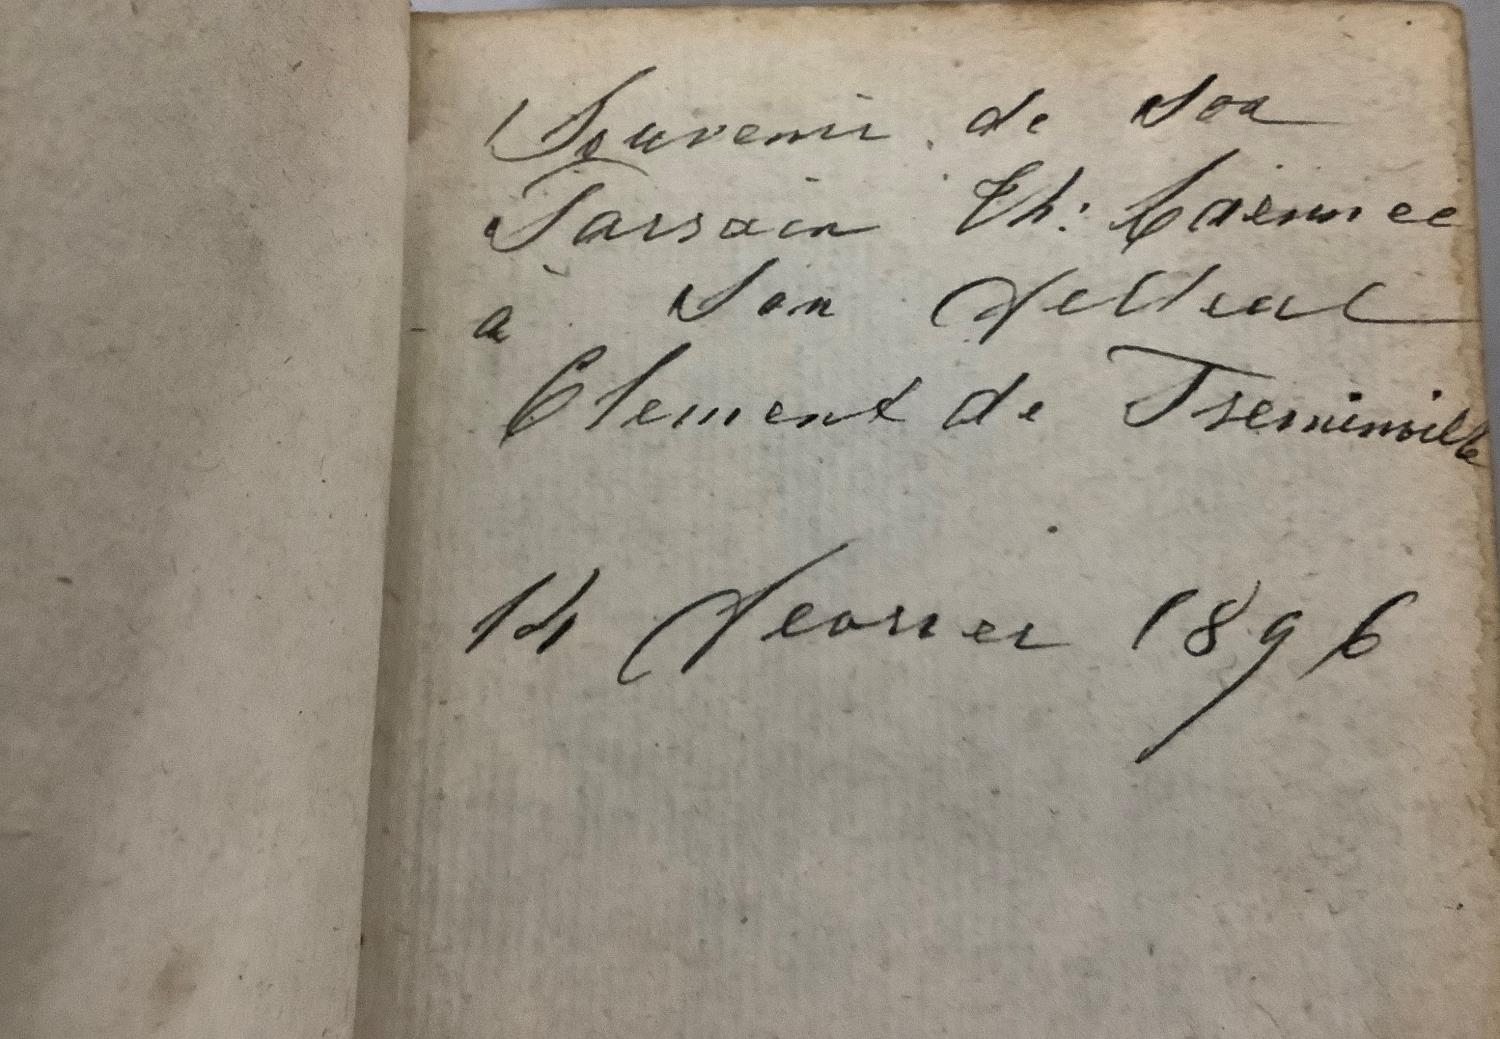 Souvenir de son
Parrain Th:
à son filleul
Clement de Treminville
14 fevrier 1896